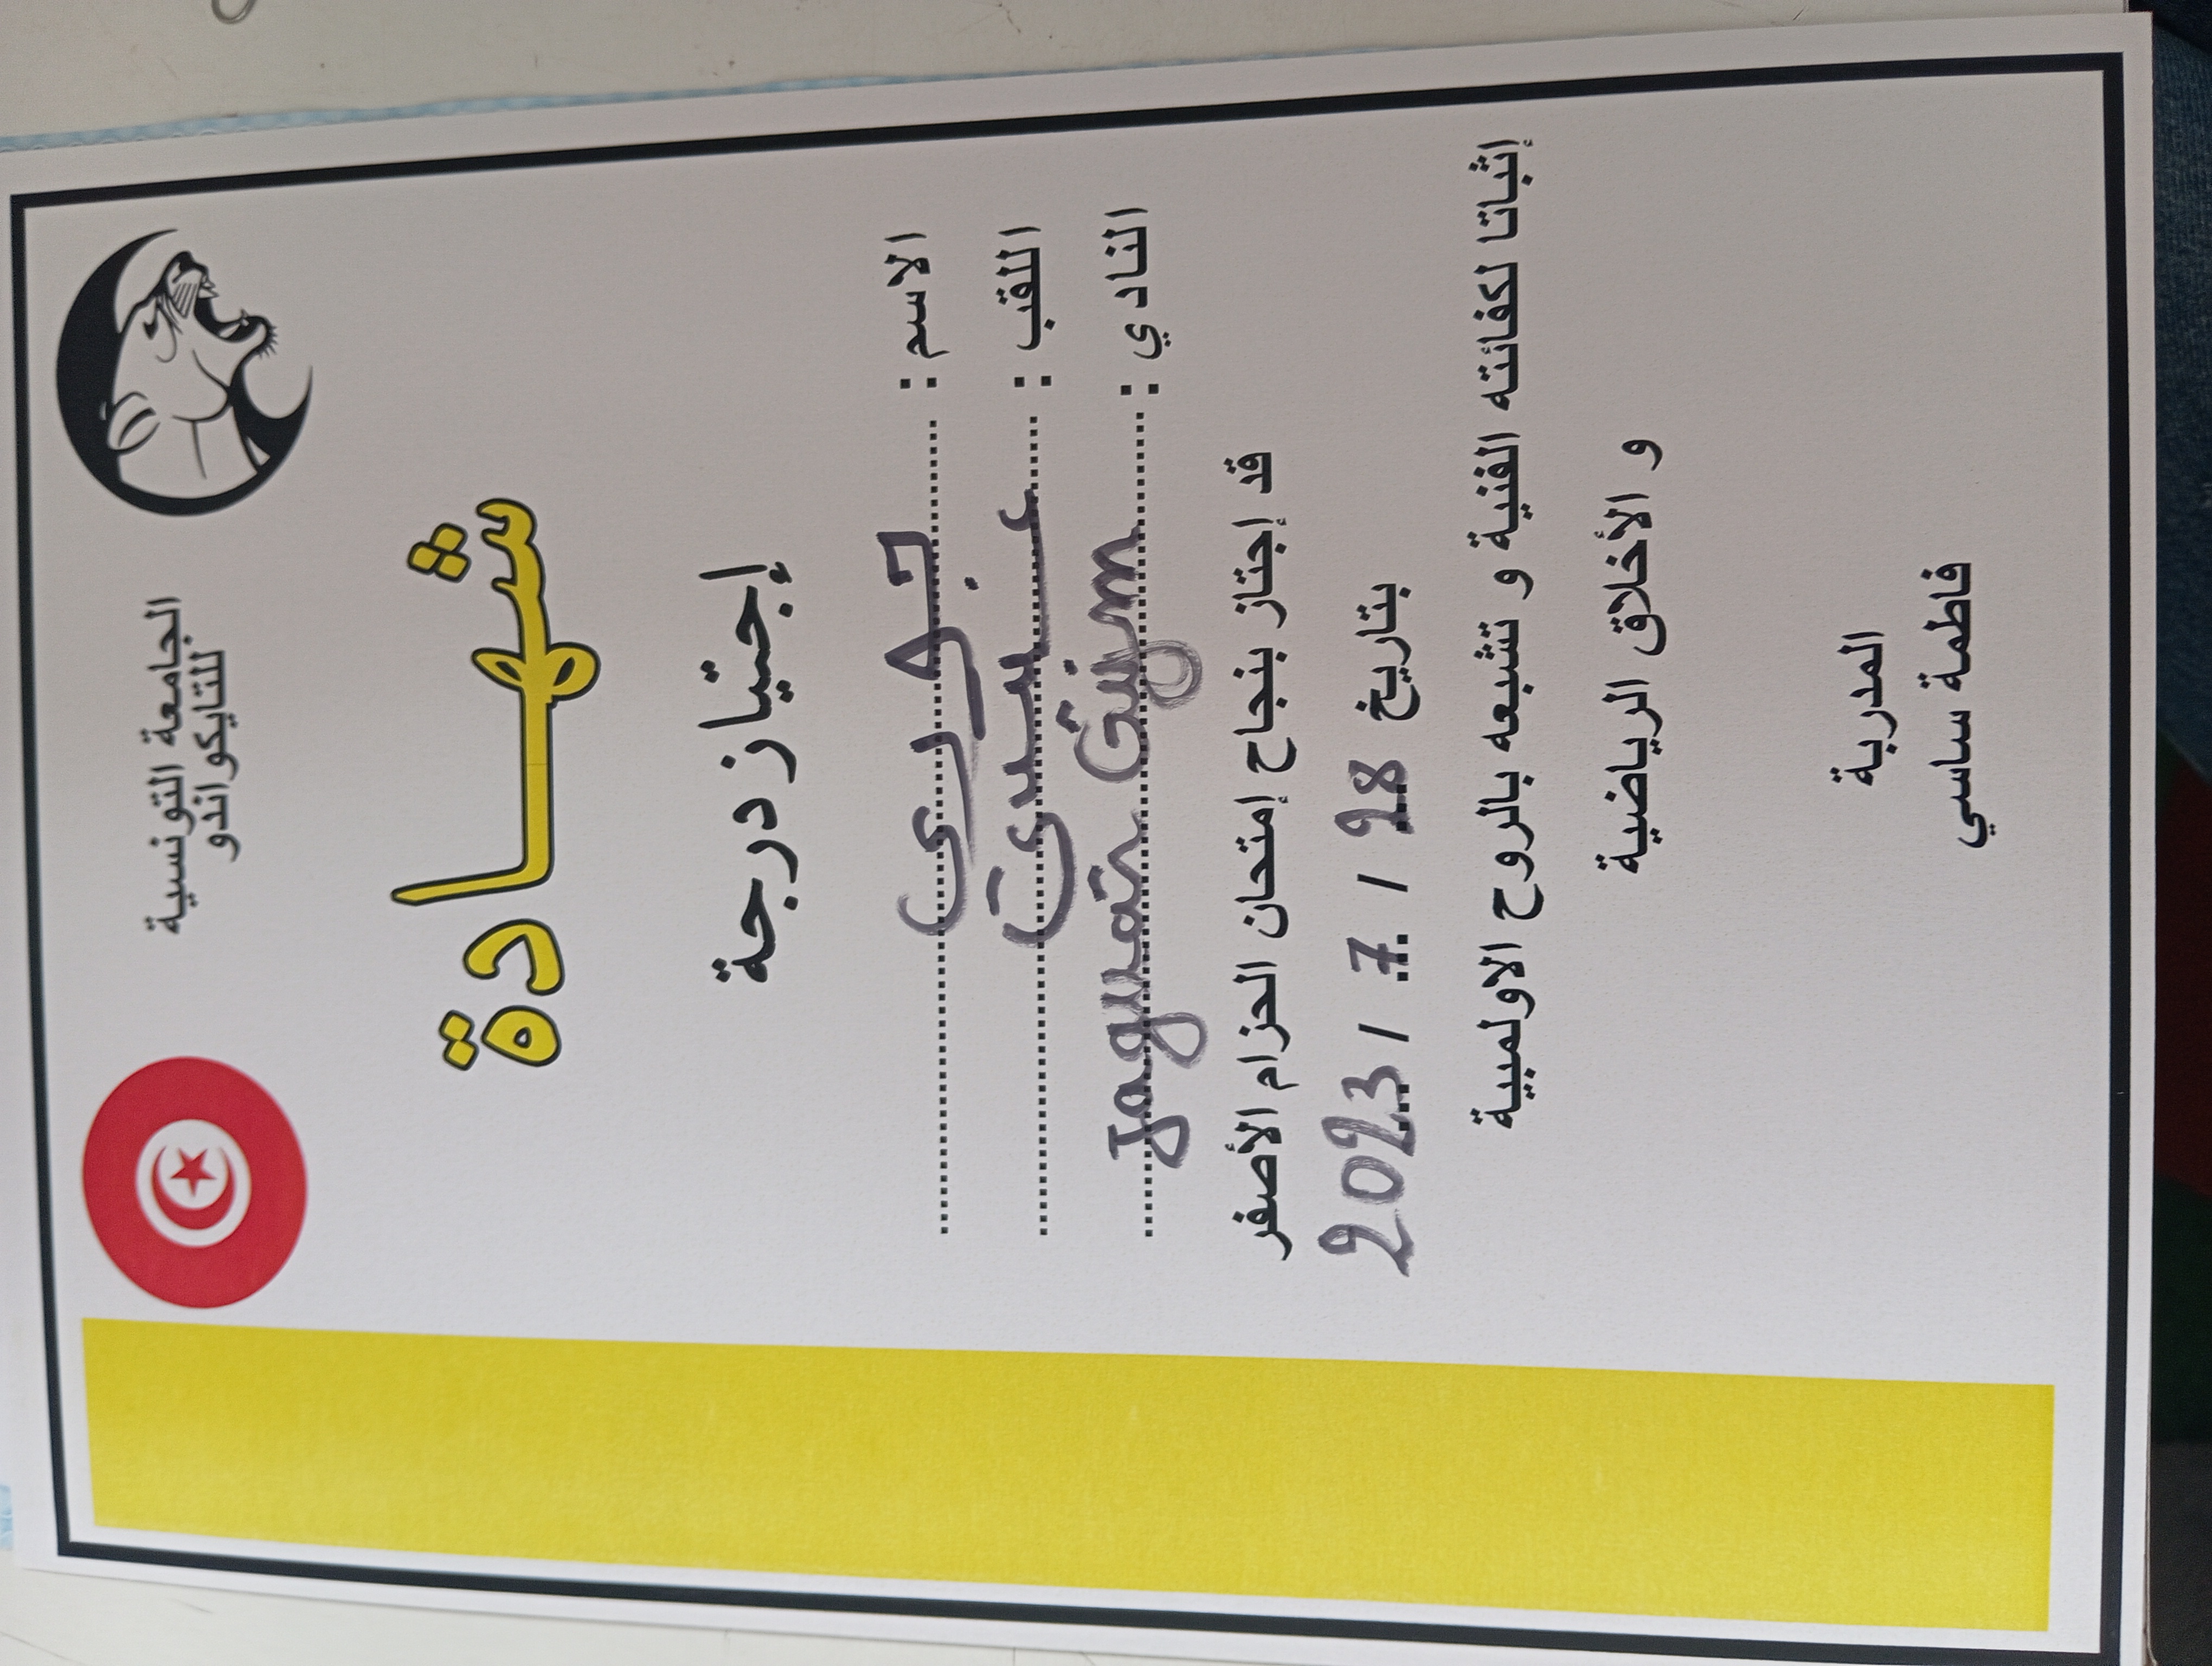 الجامعة التونسية
للتايكواندو
شهادة
إجتياز درجة
الاسم :
اللقب :
النادي : Jaguar Gym
قد إجتاز بنجاح إمتحان الحزام الأصفر
بتاريخ 28 / 7 / 2023
إثباتا لكفائته الفنية و تشبعه بالروح الاولمبية
و الأخلاق الرياضية
المدربة
فاطمة ساسي